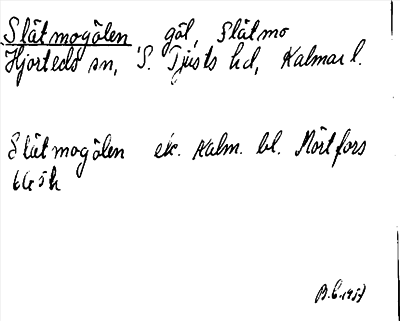 Slätmogölen, göl, Slätmo
Hjorteds sn, S. Tjusts hd, Kalmar l.
Slätmogölen ek. Kalm. bl. Mörtfors
6G5h